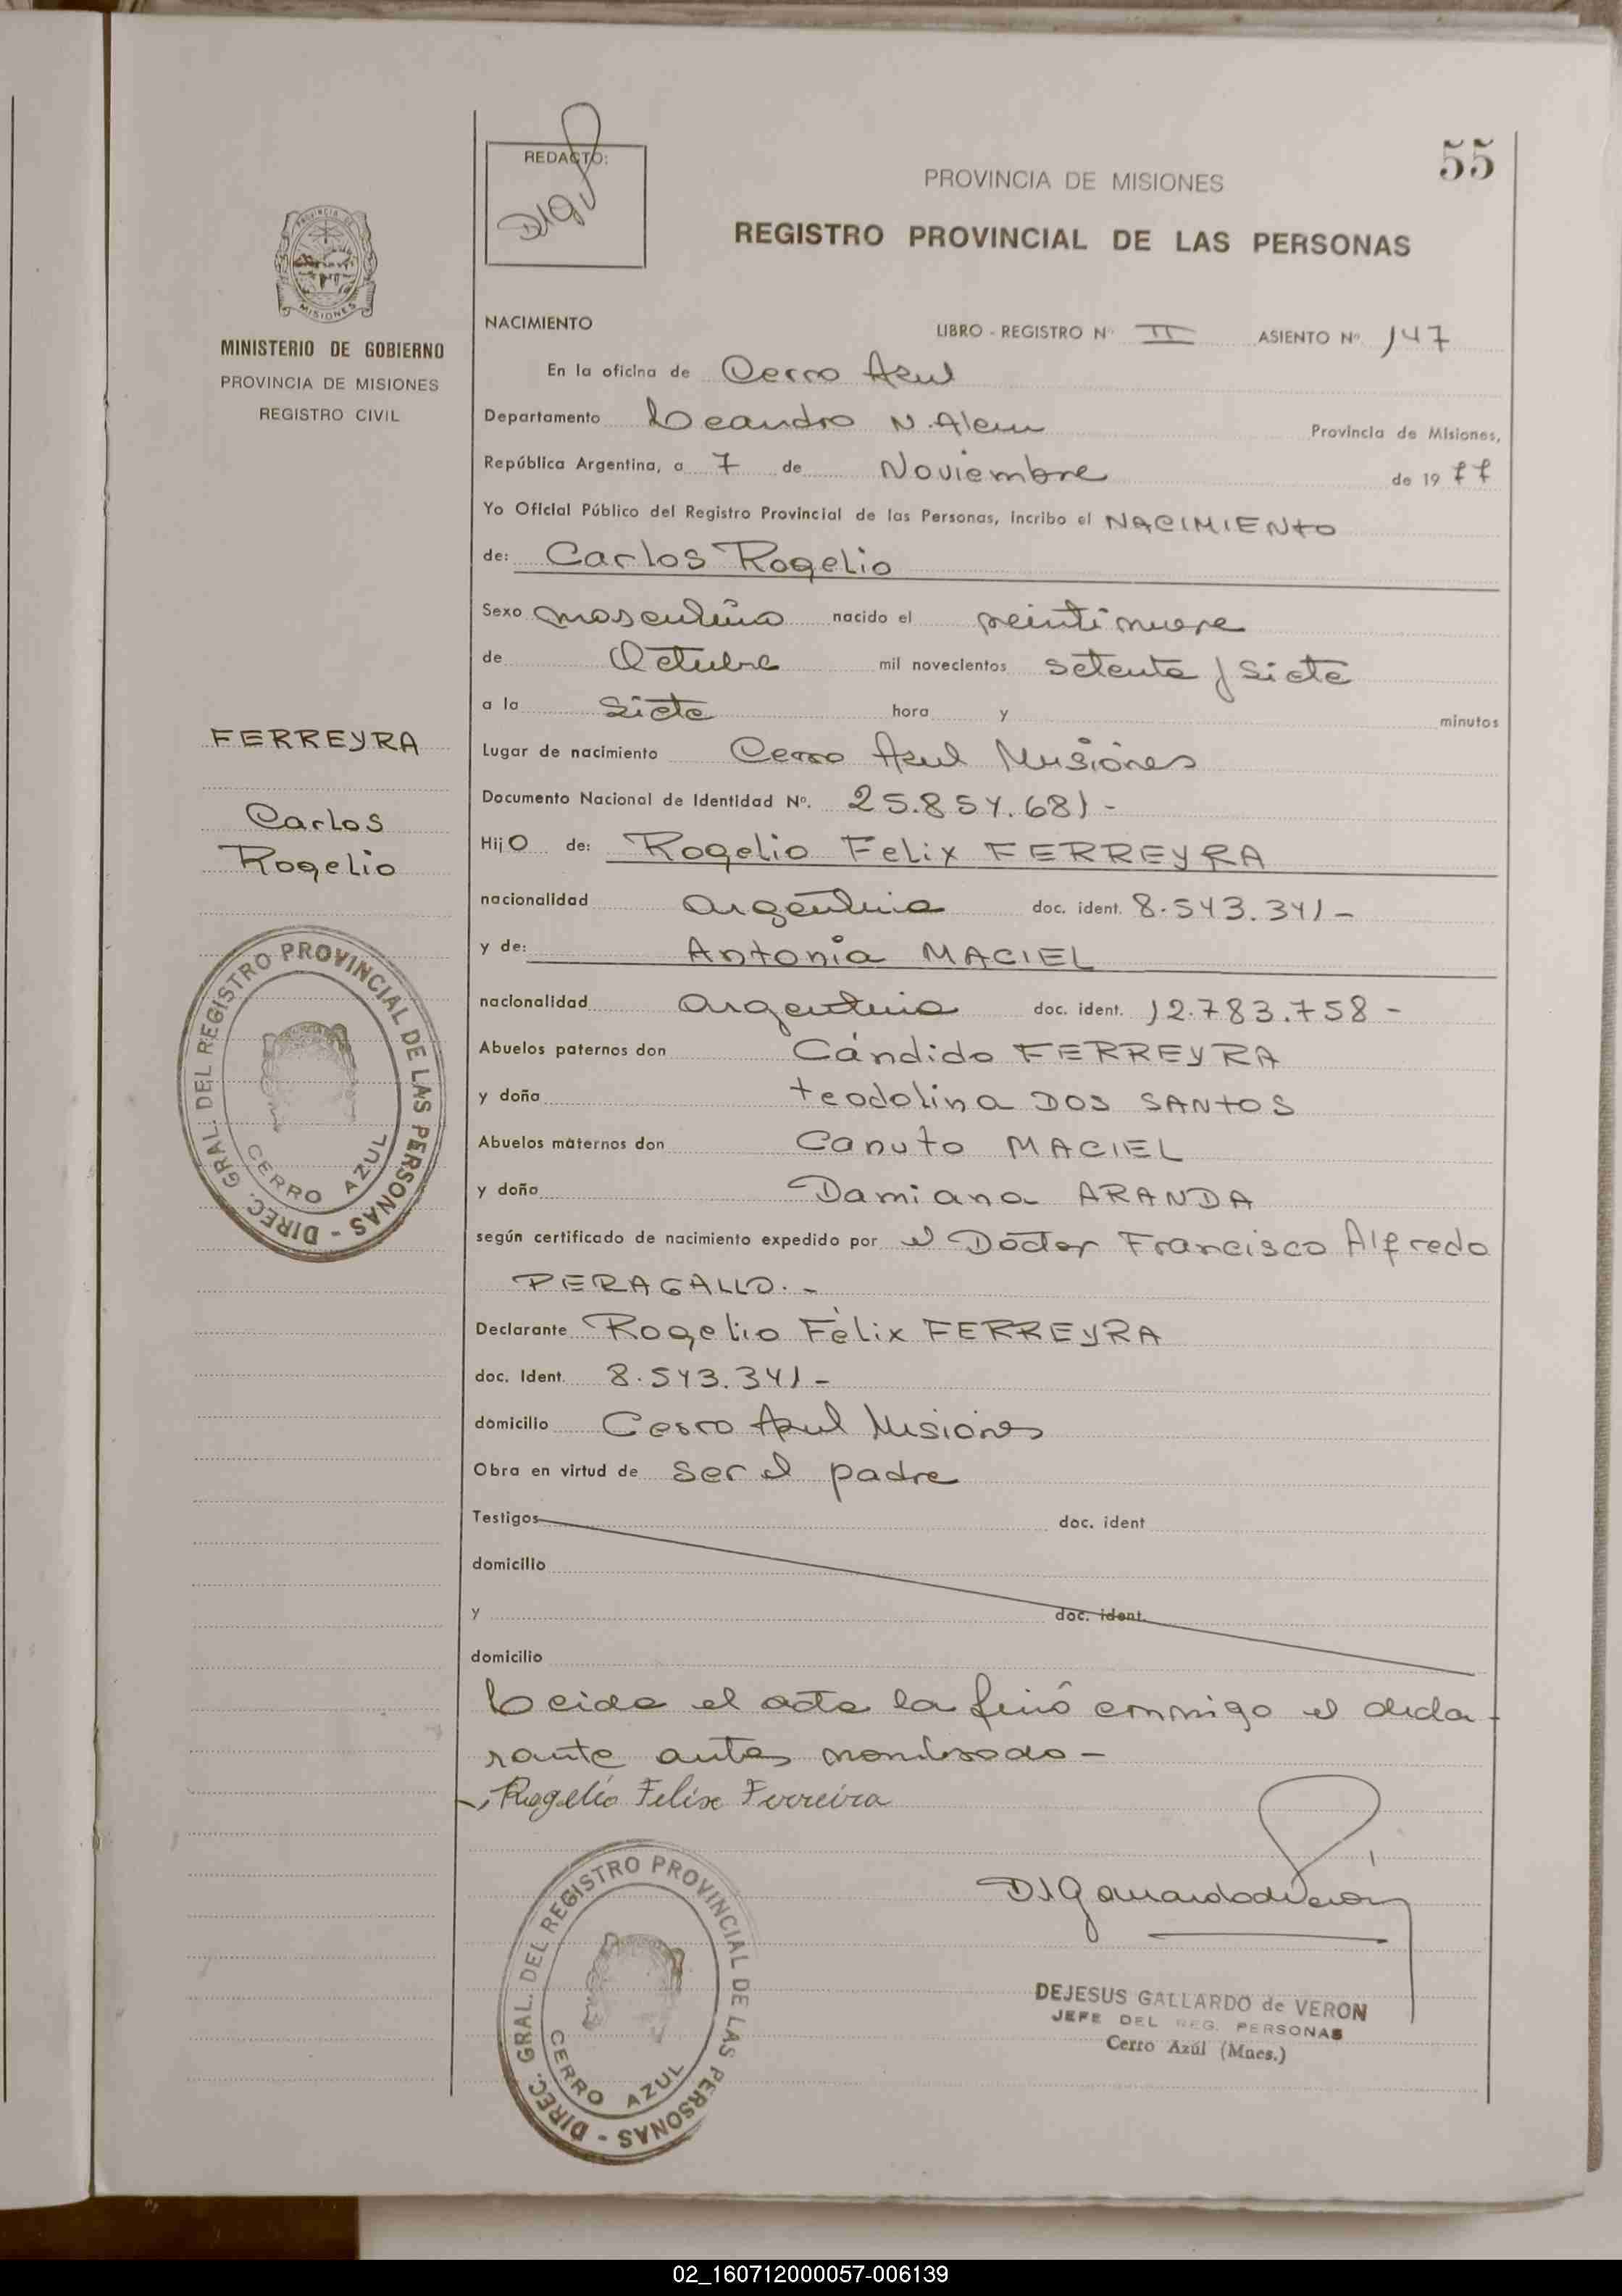 55
REDACTO:
PROVINCIA DE MISIONES
REGISTRO PROVINCIAL DE LAS PERSONAS
PROVINCIA DE
MISIONES
MINISTERIO DE GOBIERNO
PROVINCIA DE MISIONES
REGISTRO CIVIL
NACIMIENTO LIBRO - REGISTRO Nº II ASIENTO Nº 147
En la oficina de Cerro Azul
Departamento Leandro N. Alem Provincia de Misiones,
República Argentina, a 7 de Noviembre de 1977
Yo Oficial Público del Registro Provincial de las Personas, incribo el NACIMIENTO
de: Carlos Rogelio
Sexo masculino nacido el veintinueve
de Octubre mil novecientos setenta y siete
a la siete hora y minutos
FERREYRA
Carlos
Rogelio
Lugar de nacimiento Cerro Azul Misiones
Documento Nacional de Identidad Nº. 25.854.681 -
Hijo de: Rogelio Felix FERREYRA
nacionalidad argentina doc. ident. 8.543.341 -
y de: Antonia MACIEL
nacionalidad argentina doc. ident. 12.783.758 -
Abuelos paternos don Cándido FERREYRA
y doña Teodolina DOS SANTOS
Abuelos maternos don Canuto MACIEL
y doña Damiana ARANDA
según certificado de nacimiento expedido por el Doctor Francisco Alfredo
PERAGALLO. -
DIREC. GRAL. DEL REGISTRO PROVINCIAL DE LAS PERSONAS -
CERRO AZUL
Declarante Rogelio Félix FERREYRA
doc. Ident. 8.543.341 -
domicilio Cerro Azul Misiones
Obra en virtud de ser el padre
Testigos doc. ident
domicilio
y doc. ident.
domicilio
Leida el acta la firmó conmigo el decla-
rante antes nombrado -
Rogelio Felix Ferreira
DIREC. GRAL. DEL REGISTRO PROVINCIAL DE LAS PERSONAS -
CERRO AZUL
DEJESUS GALLARDO de VERON
JEFE DEL REG. PERSONAS
Cerro Azúl (Mnes.)
02_160712000057-006139